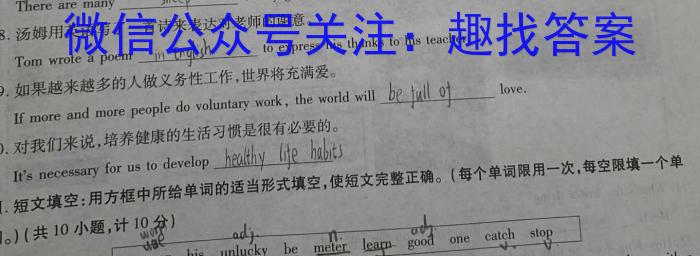 There are many sheep
8. 汤姆用英语写了一首诗来表达对老师的谢意。
微信公众号关注：趣找答案
Tom wrote a poem in English to express his thanks to his teacher.
9. 如果越来越多的人做义务性工作，世界将充满爱。
If more and more people do voluntary work, the world will be full of love.
0. 对我们来说，培养健康的生活习惯是很有必要的。
It's necessary for us to develop healthy life habits
I. 短文填空：用方框中所给单词的适当形式填空，使短文完整正确。(每个单词限用一次，每空限填一个单
词。)(共 10 小题，计 10 分)
adj. n. adj.
his unlucky be meter learn good one catch stop
v. v.